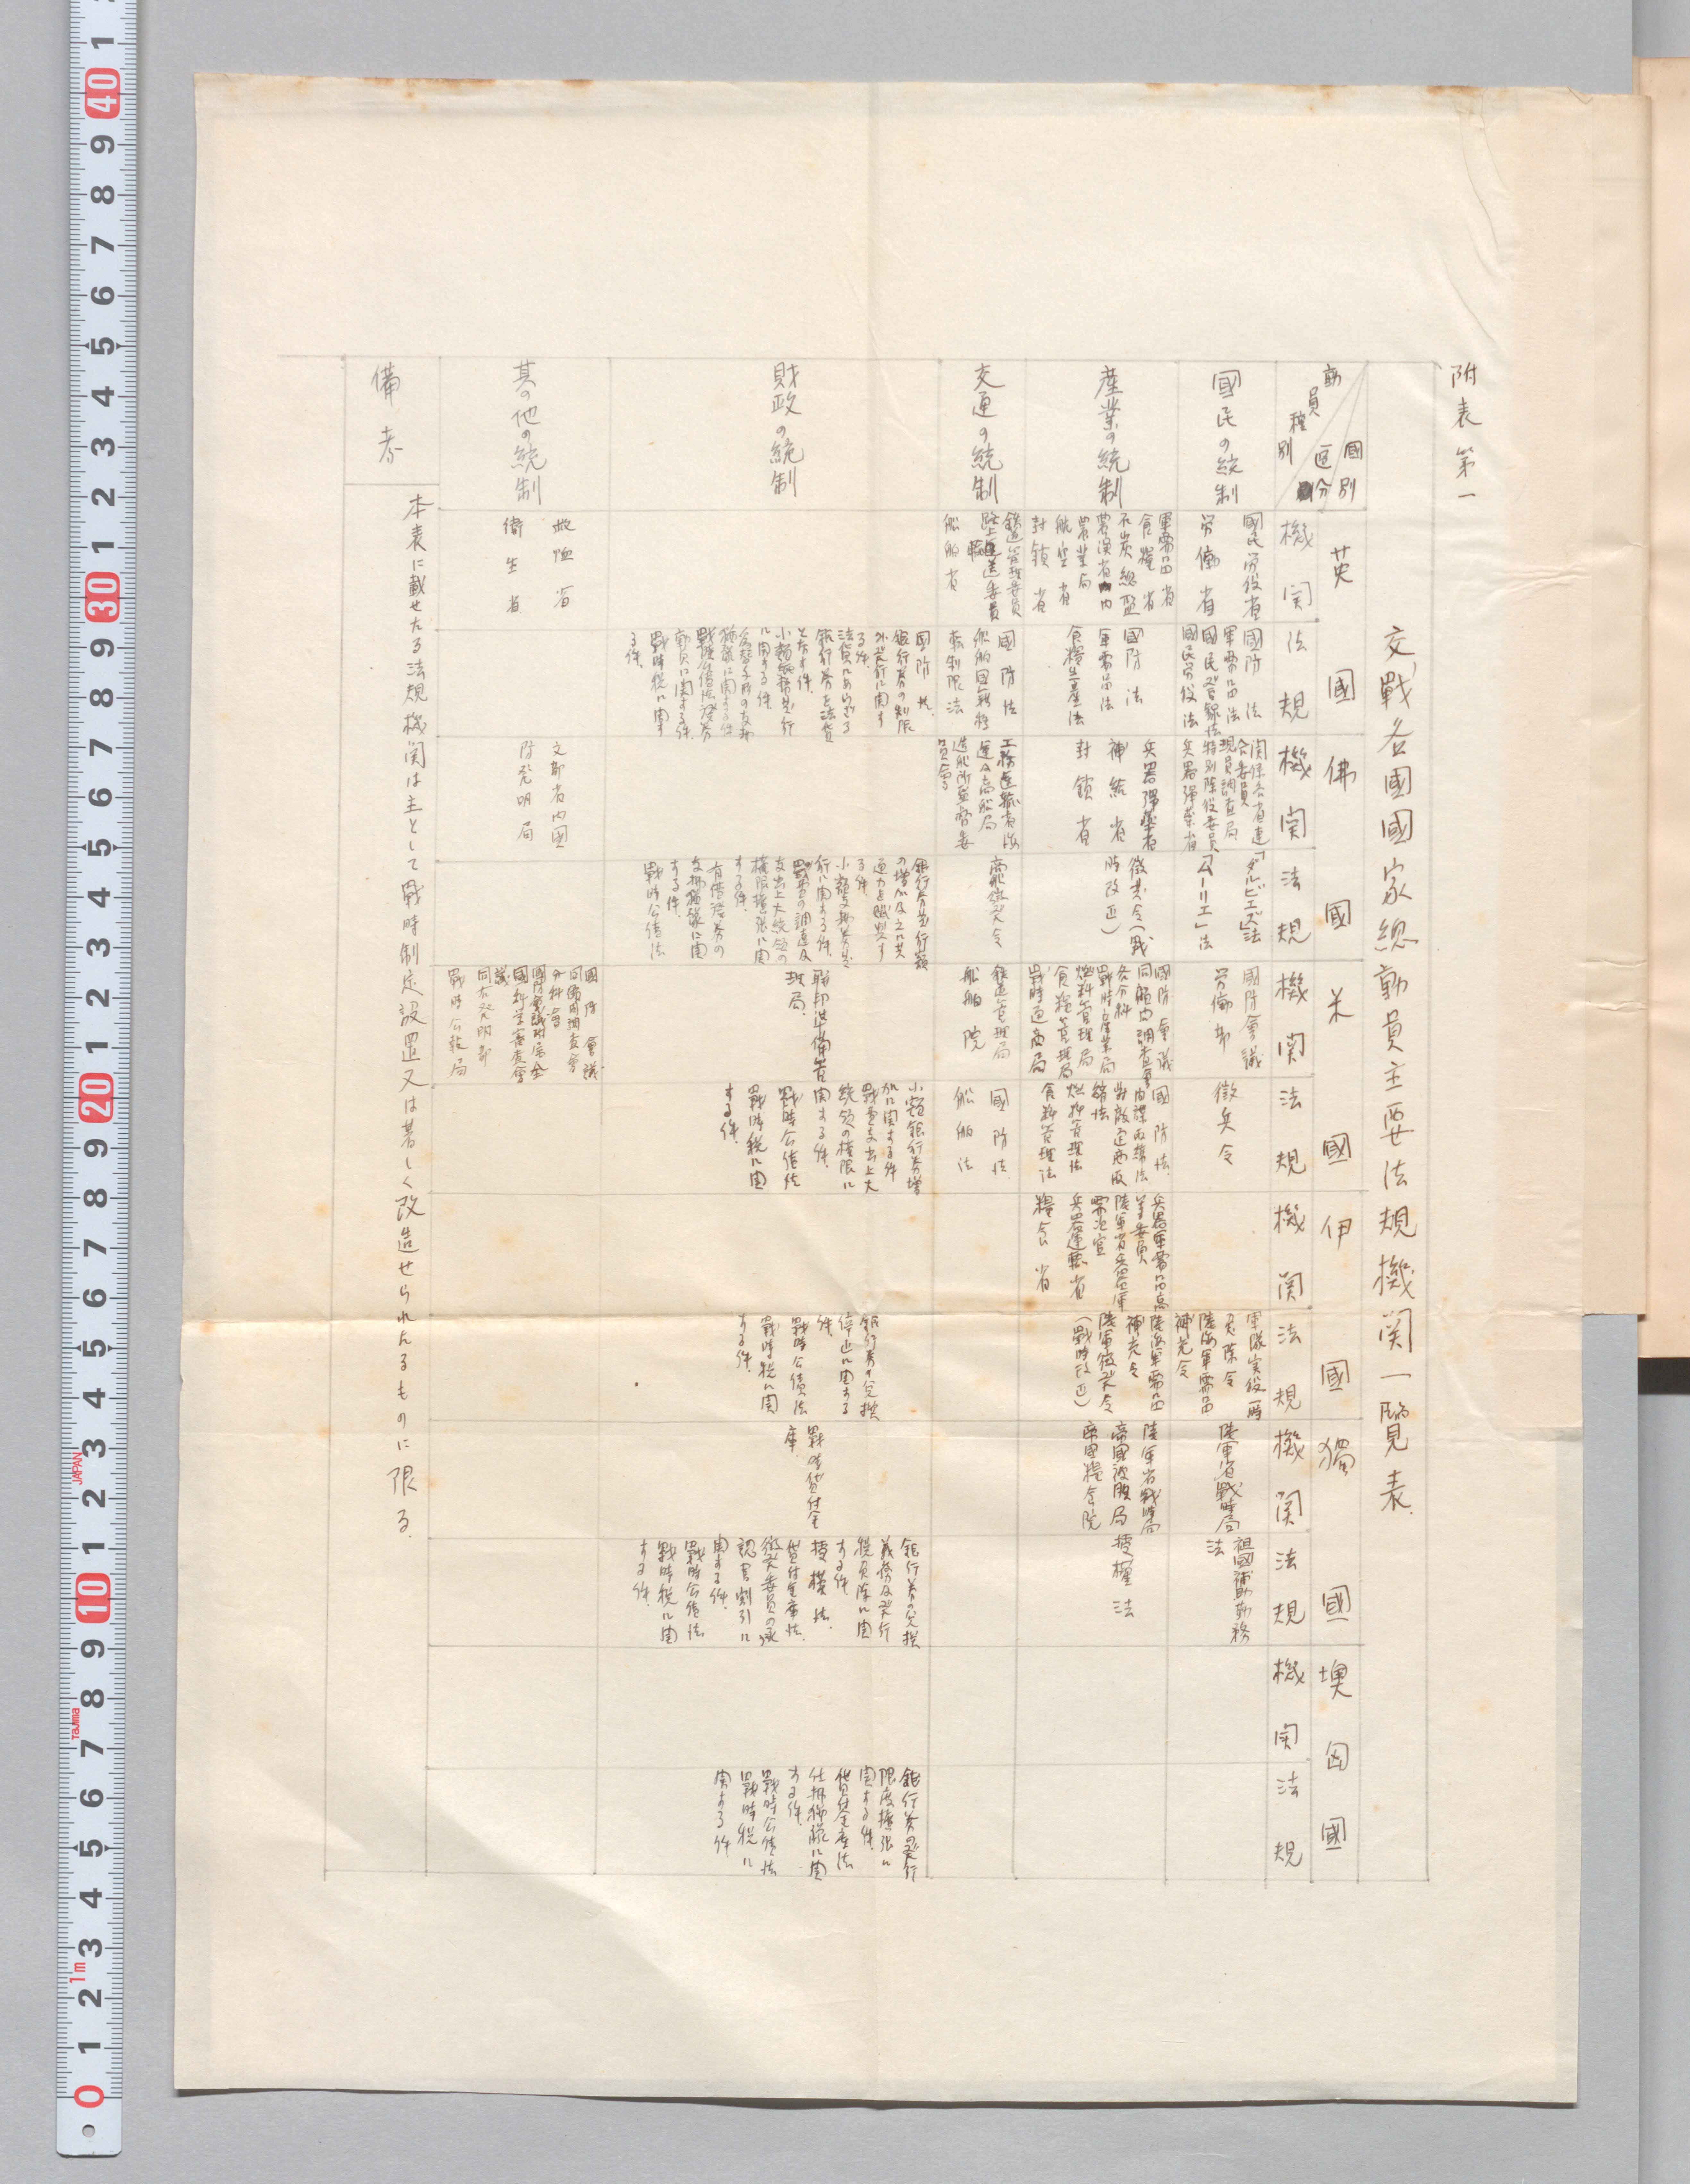 附表第一
交戰各國國家總動員主要法規機関一覧表
國別
区分
動員種別
英國
佛國
米國
伊國
獨國
墺匈國
機関
法規
機関
法規
機関
法規
機関
法規
機関
法規
機関
法規
國民の統制
國民労役省
労働省
國防法
軍需品法
國民登録法
國民労役法
関係各省連
合委員
現員調査局
特別除役委員
兵器弾薬省
「ダルビエズ」法
「ムーリエ」法
國防會議
労働部
徴兵令
軍隊実役一時
免除令
陸海軍需品
補充令
陸軍省戰時局
祖國補助勤務
法
産業の統制
軍需品省
食糧省
石炭総監
農漁省内
農業局
航空省
封鎖省
國防法
軍需品法
食糧生産法
兵器弾薬省
補給省
封鎖省
徴発令(戰
時改正)
國防會議
同顧内調査會
各分科
戰時産業局
燃料管理局
食糧管理局
戰時通商局
國防法
内諜取締法
対敵通商取
締法
燃料管理法
食料管理法
兵器軍需品总
筆委員
陸軍省兵器軍
需次官
兵器運輸省
糧食省
陸海軍需品
補充令
陸軍徴発令
(戰時改正)
陸軍省戰時局
帝國被服局
帝国糧食院
授權法
交通の統制
鉄道管理委員
陸上運送委員
船舶省
國防法
船舶国籍移
転制限法
工務運輸省海
運及商船局
造船所監督委
員會
商船徴発令
鉄道管理局
船舶院
國防法
船舶法
財政の統制
國防法
銀行券の制限
外発行に関す
る件
法貨にあらざる
銀行券を法貨
となす件
小額紙幣発行
に関する件
為替手形の支拂
猶豫に関する件
戰時公債法證券
動員に関する件
戰時税に関す
る件
銀行券発行額
の増加及之に共
通力を賦與す
る件
小額支拂券発
行に関する件
戰費の調達及
支出上大統領の
権限擴張に関
する件
有價證券の
支拂猶豫に関
する件
戰時公債法
聯邦準備管
理局
小額銀行券増
加に関する件
戰費支出上大
統領の権限に
関する件
戰時公債法
戰時税に関
する件
銀行券の兌換
停止に関する
件
戰時公債法
戰時税に関
する件
戰時貸付金
庫
銀行券の兌換
義務及発行
税免除に関
する件
授權法
貸付金庫法
徴発委員の承
認書割引に
関する件
戰時公債法
戰時税に関
する件
銀行券の発行
限度擴張に
関する件
貸付金庫法
仕拂猶豫に関
する件
戰時公債法
戰時税に
関する件
其の他の統制
救恤省
衛生省
文部省内国
防発明局
國防會議
同衛生調査會
分科會
國防會議附属全
國科学審査會
議
同右発明部
戰時公報局
備考
本表に載せたる法規機関は主として戰時制定設置又は著しく改造せられたるものに限る.